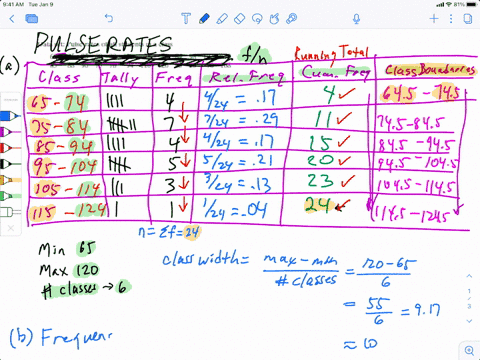 9:41 AM Tue Jan 9
81%
PULSE RATES
f/n
Running Total
(a)
Class Tally Freq Rel. Freq Cum. Freq Class Boundaries
65 - 74 |||| 4 4/24 = .17 4 ✓ 64.5 - 74.5
75 - 84 7 7/24 = .29 11 ✓ 74.5 - 84.5
85 - 94 |||| 4 4/24 = .17 15 ✓ 84.5 - 94.5
95 - 104 5 5/24 = .21 20 ✓ 94.5 - 104.5
105 - 114 ||| 3 3/24 = .13 23 ✓ 104.5 - 114.5
115 - 124 | 1 1/24 = .04 24 ✓ 114.5 - 124.5
n = Σf = 24
Min 65
Max 120
# classes → 6
class width = max - min / # classes = 120 - 65 / 6
= 55/6 = 9.17
≈ 10
(b) Frequen
1
3